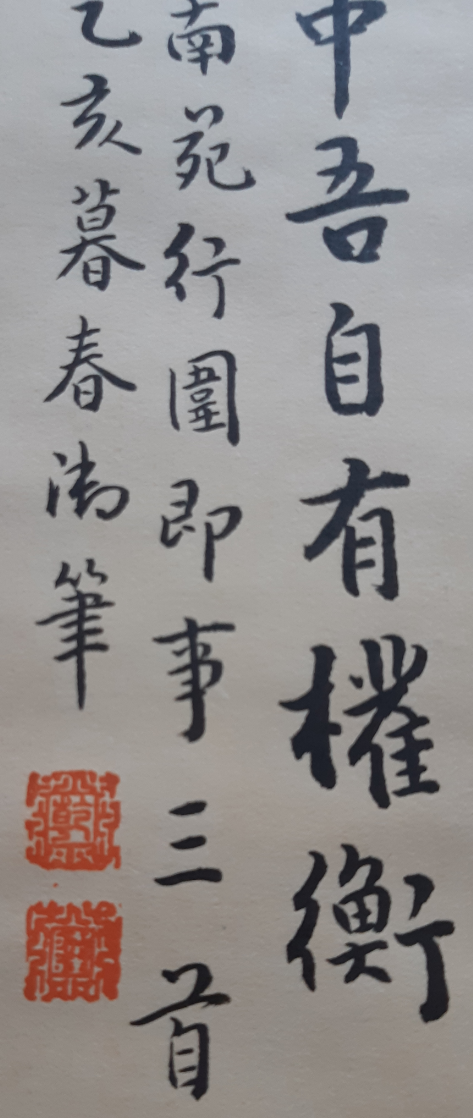 中吾自有權衡
南苑行圍即事三首
乙亥暮春御筆